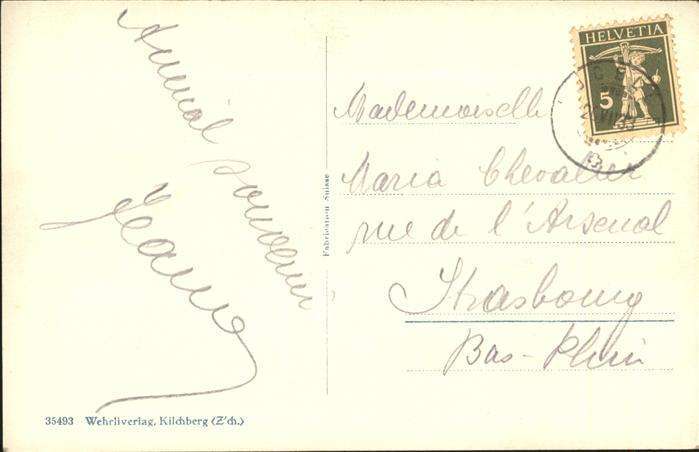 Amical
souvenir
Jeanne
Fabrication Suisse
HELVETIA
5
Mademoiselle
Maria Chevalier
rue de l'Arsenal
Strasbourg
Bas-Rhin
35493 Wehrliverlag, Kilchberg (Z'ch.)